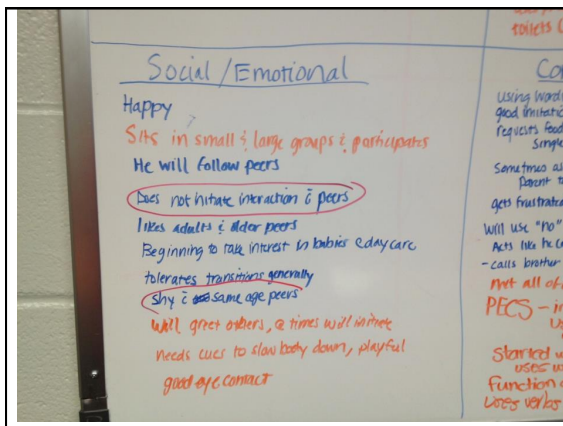 toilets
Social/Emotional
Happy
Sits in small & large groups & participates
He will follow peers
Does not initate interaction c̄ peers
likes adults & older peers
Beginning to take interest in babies @ daycare
tolerates transitions generally
Shy c̄ same age peers
Will greet others, @ times will initiate
needs cues to slow body down, playful
good eye contact
Using word
good imitatio
requests food
Single
Sometimes as
Parent t
gets frustrate
Will use "no"
Acts like he c
-calls brother
not all of
PECS - i
Started
uses w
function
Uses verbs